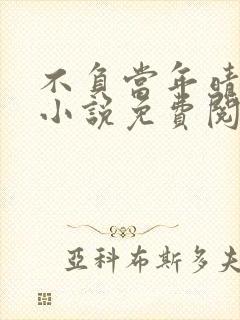 不負當年晴
小說免費閱
亞科布斯多夫